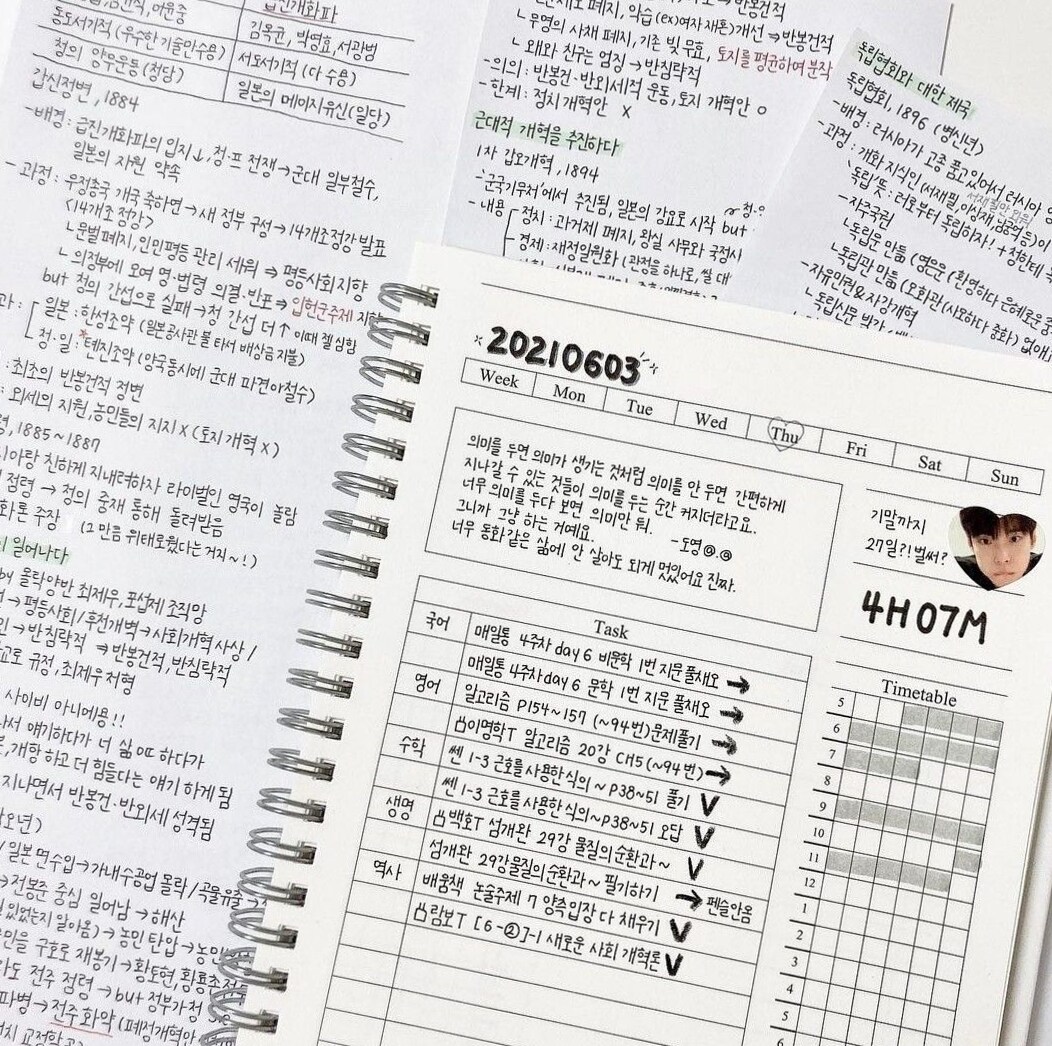 급진개화파
동도서기적 (우수한 기술만 수용)
김옥균, 박영효, 서광범
청의 양무운동 (청당)
서도서기적 (다 수용)
일본의 메이지유신 (일당)
갑신정변, 1884
-배경: 급진개화파의 입지↓, 청·프 전쟁→군대 일부철수,
일본의 지원 약속
- 과정: 우정총국 개국 축하연→새 정부 구성→14개조정강 발표
<14개조 정강>
ㄴ문벌 폐지, 인민평등 관리 세워 ⇒ 평등사회지향
ㄴ 의정부에 모여 명·법령 의결·반포⇒ 입헌군주제 지향
but 청의 간섭으로 실패→청 간섭 더↑ 이때 젤 심함
일본: 한성조약 (일본공사관 불 타서 배상금 지불)
청·일: *텐진조약 (양국동시에 군대 파견아철수)
: 최초의 반봉건적 정변
: 외세의 지원, 농민들의 지지 X (토지개혁 X)
, 1885~1887
친하게 지내려하자 라이벌인 영국이 놀람
점령 → 청의 중재 통해 돌려받음
화론 주장 (그만큼 위태로웠다는 거지~!)
일어나다
by 몰락양반 최제우, 포섭제 조직망
→평등사회/후천개벽→사회개혁 사상/
→반침략적 ⇒반봉건적, 반침략적
교로 규정, 최제우 처형
사이비 아니에용!!
나서 얘기하다가 너 삶 어때 하다가
, 개항 하고 더 힘들다는 얘기 하게 됨
지나면서 반봉건·반외세 성격됨
일본 면수입→가내수공업 몰락/곡물유출
→전봉준 중심 일어남→해산
있었는지 알아옴)→농민 탄압→농민
구호로 재봉기→황토현, 황룡촌
도 전주 점령→but 정부가 청
파병→전주화약 (폐정개혁안
폐지, 악습 (ex)여자 재혼)개선 ⇒반봉건적
ㄴ 무명의 사채 폐지, 기존 빚 무효, 토지를 평균하여 분작
ㄴ 왜와 친구는 엄징→반침략적
-의의: 반봉건·반외세적 운동, 토지 개혁안 O
-한계: 정치 개혁안 X
근대적 개혁을 추진하다
1차 갑오개혁, 1894
-'군국기무처'에서 추진됨, 일본의 강요로 시작 but
-내용 정치: 과거제 폐지, 왕실 사무와 국정사
경제: 재정일원화 (관청을 하나로, 쌀 대
독립협회와 대한 제국
독립협회, 1896 (병신년)
-배경: 러시아가 고종 품고있어서 러시아
-과정: 개화 지식인 (서재필, 이상재, 남궁억 등)이
독립 뜻: 더로부터 독립하자! + 청한테
-자주국권
ㄴ독립문 만듦 (영은문 (환영하다 은혜로운
ㄴ독립관 만듦 (모화관 (사모하다 중화) 없애고
-자유민권&자강개혁
ㄴ독립신문
20210603
Week Mon Tue Wed Thu Fri Sat Sun
의미를 두면 의미가 생기는 것처럼 의미를 안 두면 간편하게
지나갈 수 있는 것들이 의미를 두는 순간 커지더라고요.
너무 의미를 두다 보면 의미만 둬.
그니까 그냥 하는 거예요. -도영@.@
너무 동화같은 삶에 안 살아도 되게 멋있어요 진짜.
기말까지
27일?!벌써?
4H 07M
Task
국어 매일통 4주차 day6 비문학 1번 지문 풀채오 →
매일통 4주차 day6 문학 1번 지문 풀채오 →
영어 알고리즘 P154~157 (~94번)문제풀기 →
이명학T 알고리즘 20강 CH5 (~94번) →
수학 쎈 1-3 근호를 사용한 식의 ~ P38~51 풀기 V
쎈 1-3 근호를 사용한 식의~P38~51 오답 V
생명 백호T 섬개완 29강 물질의 순환과~ V
섬개완 29강 물질의 순환과~ 필기하기 → 펜슬안옴
역사 배움책 논술주제 7 양측입장 다 채우기 V
람보T [6-②]-1 새로운 사회 개혁론 V
Timetable
5
6
7
8
9
10
11
12
1
2
3
4
5
6